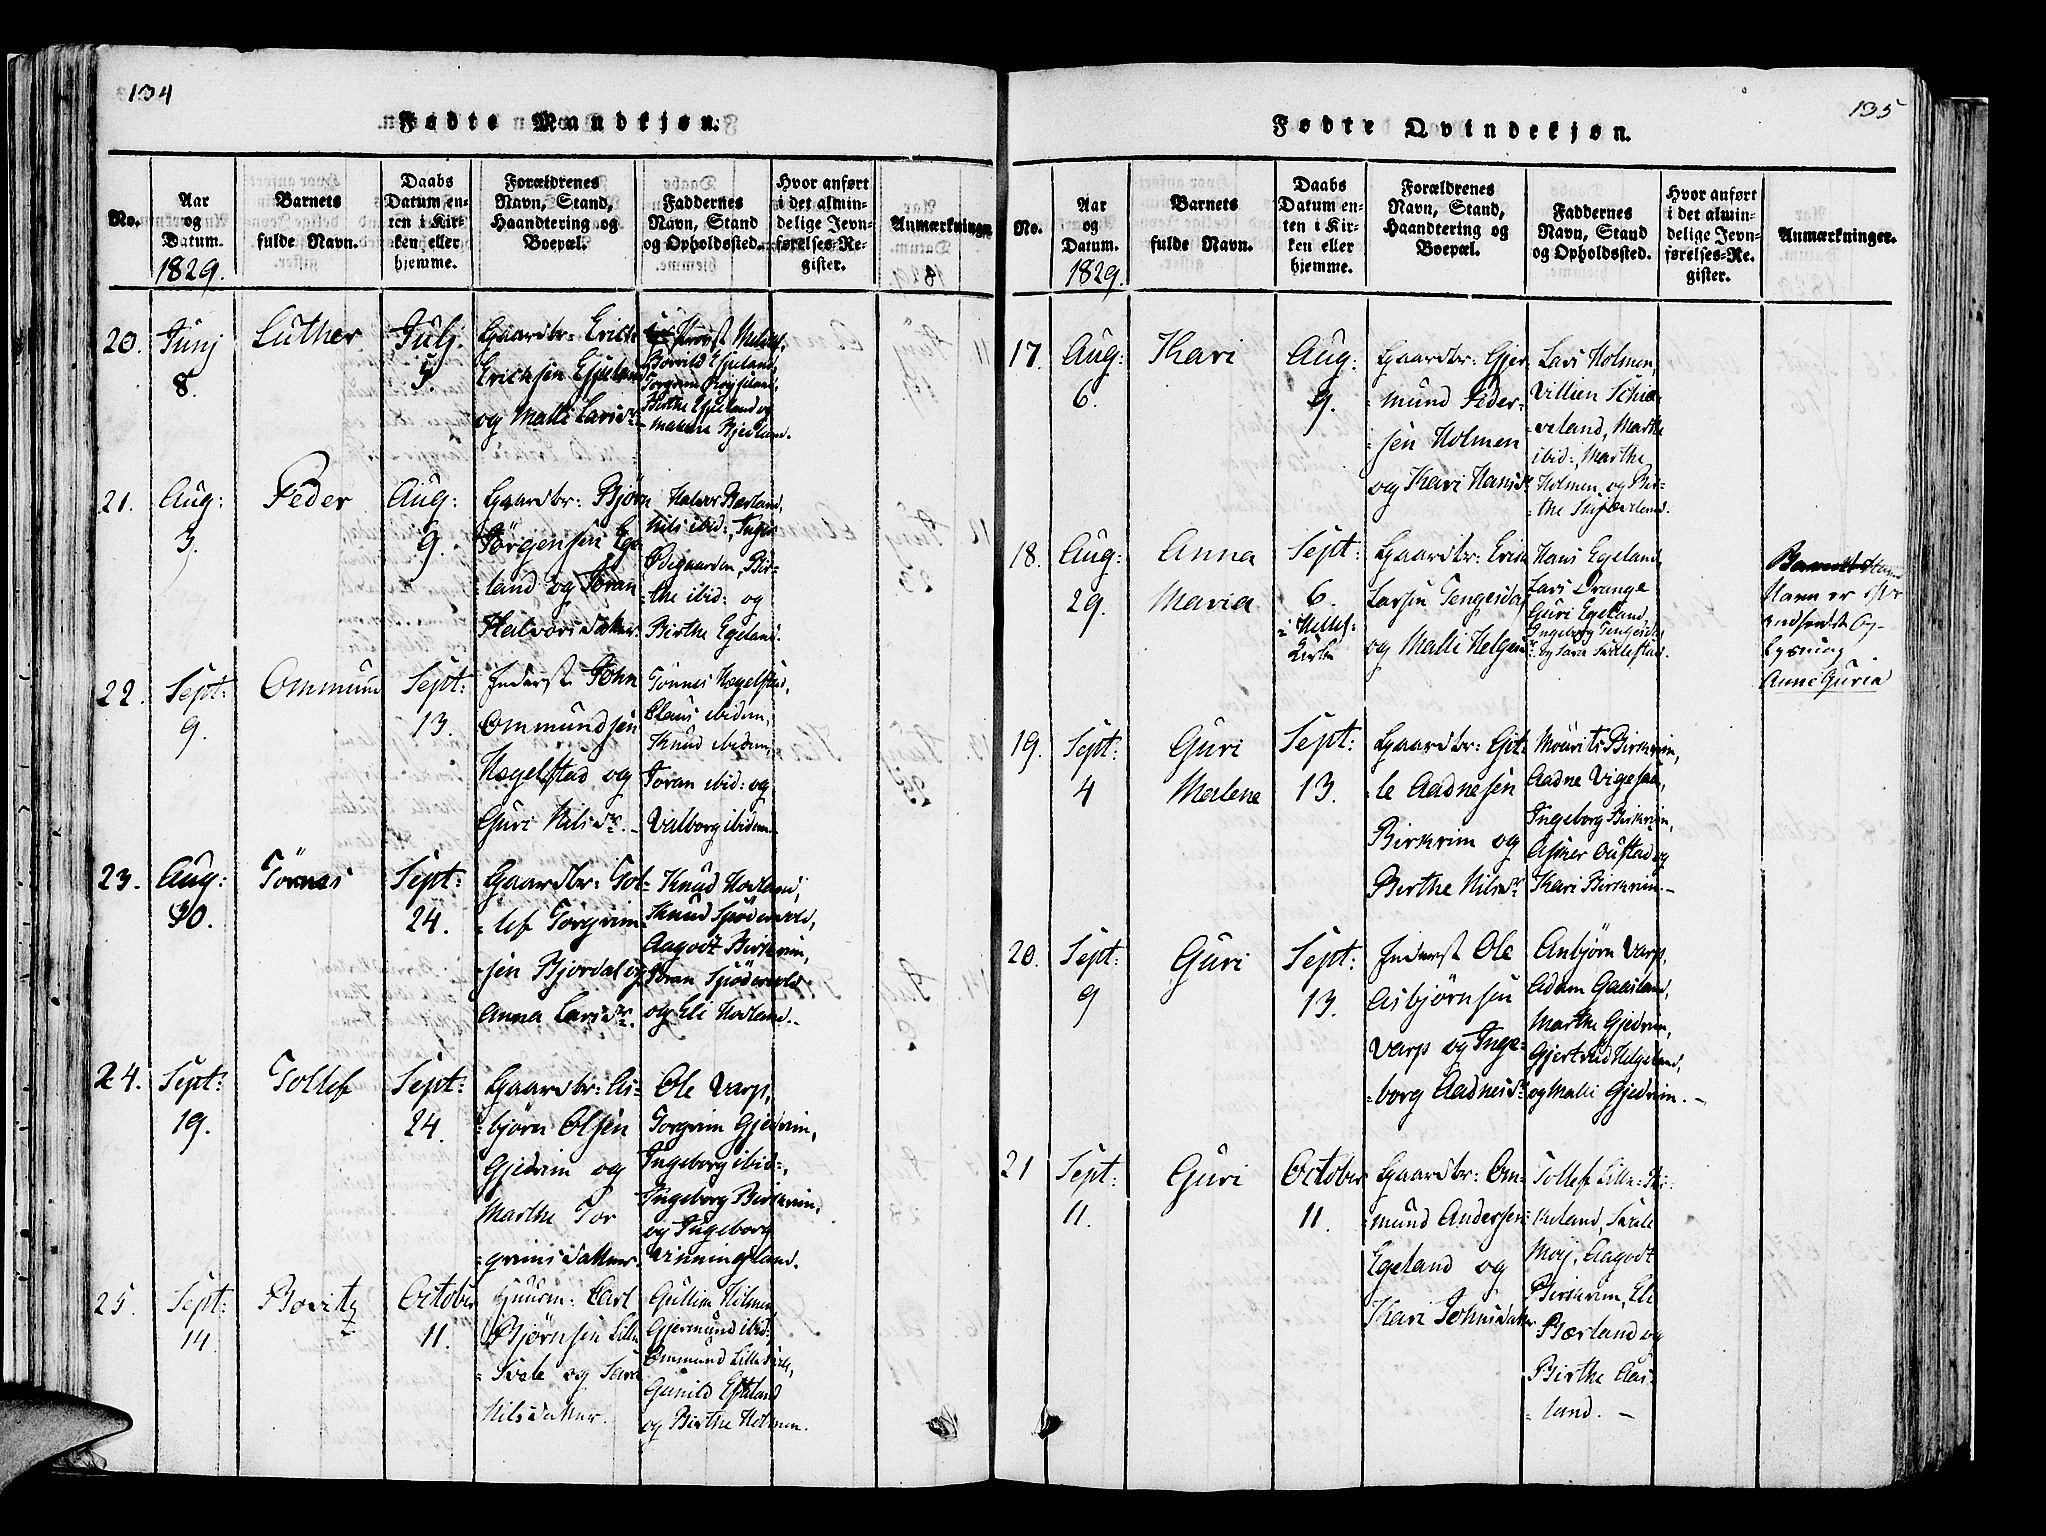 134
Fødte Mandkjøn.
No.
Aar
og
Datum.
1829.
Barnets
fulde Navn.
Daabs
Datum en-
ten i Kir-
ken eller
hjemme.
Forældrenes
Navn, Stand,
Haandtering og
Boepæl.
Faddernes
Navn, Stand
og Opholdssted.
Hvor anført
i det almin-
delige Jevn-
førelses-Re-
gister.
Anmærkninger
20.
Junj
8.
Luther
Julj
5.
Gaardbr: Erich
Erichsen Espeland
og Malli Larsdr.
Melhus,
Børrild Espeland,
Torgrim Røyseland,
Birthe Espeland og
Malene Bjelland.
21.
Aug:
3.
Peder
Aug:
9.
Gaardbr: Bjørn
Jörgensen Ege-
land og Joran
Halvorsdatter.
Halvor Berland,
Nils ibid:, Inger
Ødegaarden, Bir-
the ibid: og
Birthe Egeland.
22.
Sept:
9.
Ommund
Sept:
13.
Inderst John
Ommundsen
Hægelstad og
Guri Nilsdr.
Tönnes Hægelstad,
Claus ibidem,
Knud ibidem,
Joran ibid: og
Valborg ibidem.
23.
Aug:
30.
Tönnes
Sept:
24.
Gaardbr: Tol-
lef Torgrim-
sen Bjordal og
Anna Larsdr.
Knud Hovland,
Knud Sjödervold,
Aagodt Birkrim,
Joran Sjödervold
og Eli Hovland.
24.
Sept:
19.
Tollef
Sept:
24.
Gaardbr: As-
björn Olsen
Gjedrim og
Marthe Tor
grimsdatter.
Ole Varp,
Torgrim Gjedrim,
Ingeborg ibid:,
Ingeborg Birkrim,
og Ingeborg
Vinningland.
25.
Sept:
14.
Bovitz
October
11.
Huusm: Carl
Bjørnsen Lille
Svele og Sara
Nilsdatter.
Gullim Holmen,
Gjermund ibid:,
Ommund Lille Svele,
Gunild Efteland
og Birthe Holmen.
135
Fødte Qvindekjøn.
No.
Aar
og
Datum.
1829.
Barnets
fulde Navn.
Daabs
Datum en-
ten i Kir-
ken eller
hjemme.
Forældrenes
Navn, Stand,
Haandtering og
Boepæl.
Faddernes
Navn, Stand
og Opholdssted.
Hvor anført
i det almin-
delige Jevn-
førelses-Re-
gister.
Anmærkninger.
17.
Aug:
6.
Kari
Aug:
9.
Gaardbr: Gjer
mund Peder-
sen Holmen
og Kari Hansdr.
Lars Holmen,
Villien Schiæ-
veland, Marthe
ibid:, Marthe
Holmen og Bir-
the
18.
Aug:
29.
Anna
Maria
Sept:
6.
i Hellel:
Kirke
Gaardbr: Erik
Larsen Tengesdal
og Malli Helgesdr.
Hans Egeland,
Lars Drange
Guri Egeland,
Ingeborg Tengesdal
og Sara
Navn er efter
indsendt Op-
lysning
Anne Guria
19.
Sept:
4
Guri
Malene
Sept:
13.
Gaardbr: Git-
le Aadnesen
Birkrim og
Birthe Nilsdr.
Mourits Birkrim,
Aadne Vigesaa,
Ingeborg Birkrim,
Asser Oustad og
Kari Birkrim.
20.
Sept:
9
Guri
Sept:
13.
Inderst Ole
Asbjørnsen
Varp og Inge-
borg Aadnesdr.
Anbjørn Varp,
Adam Gaasland,
Marthe Gjedrim,
Gjertrud Helgeland,
og Malli Gjedrim.
21
Sept:
11.
Guri
October
11.
Gaardbr: Om-
mund Andersen
Egeland og
Kari Johnsdatter
Tollef Lille-Bir-
keland, Sarali
Moy, Aagodt
Birkrim, Eli
Bærland og
Birthe Aas-
land.